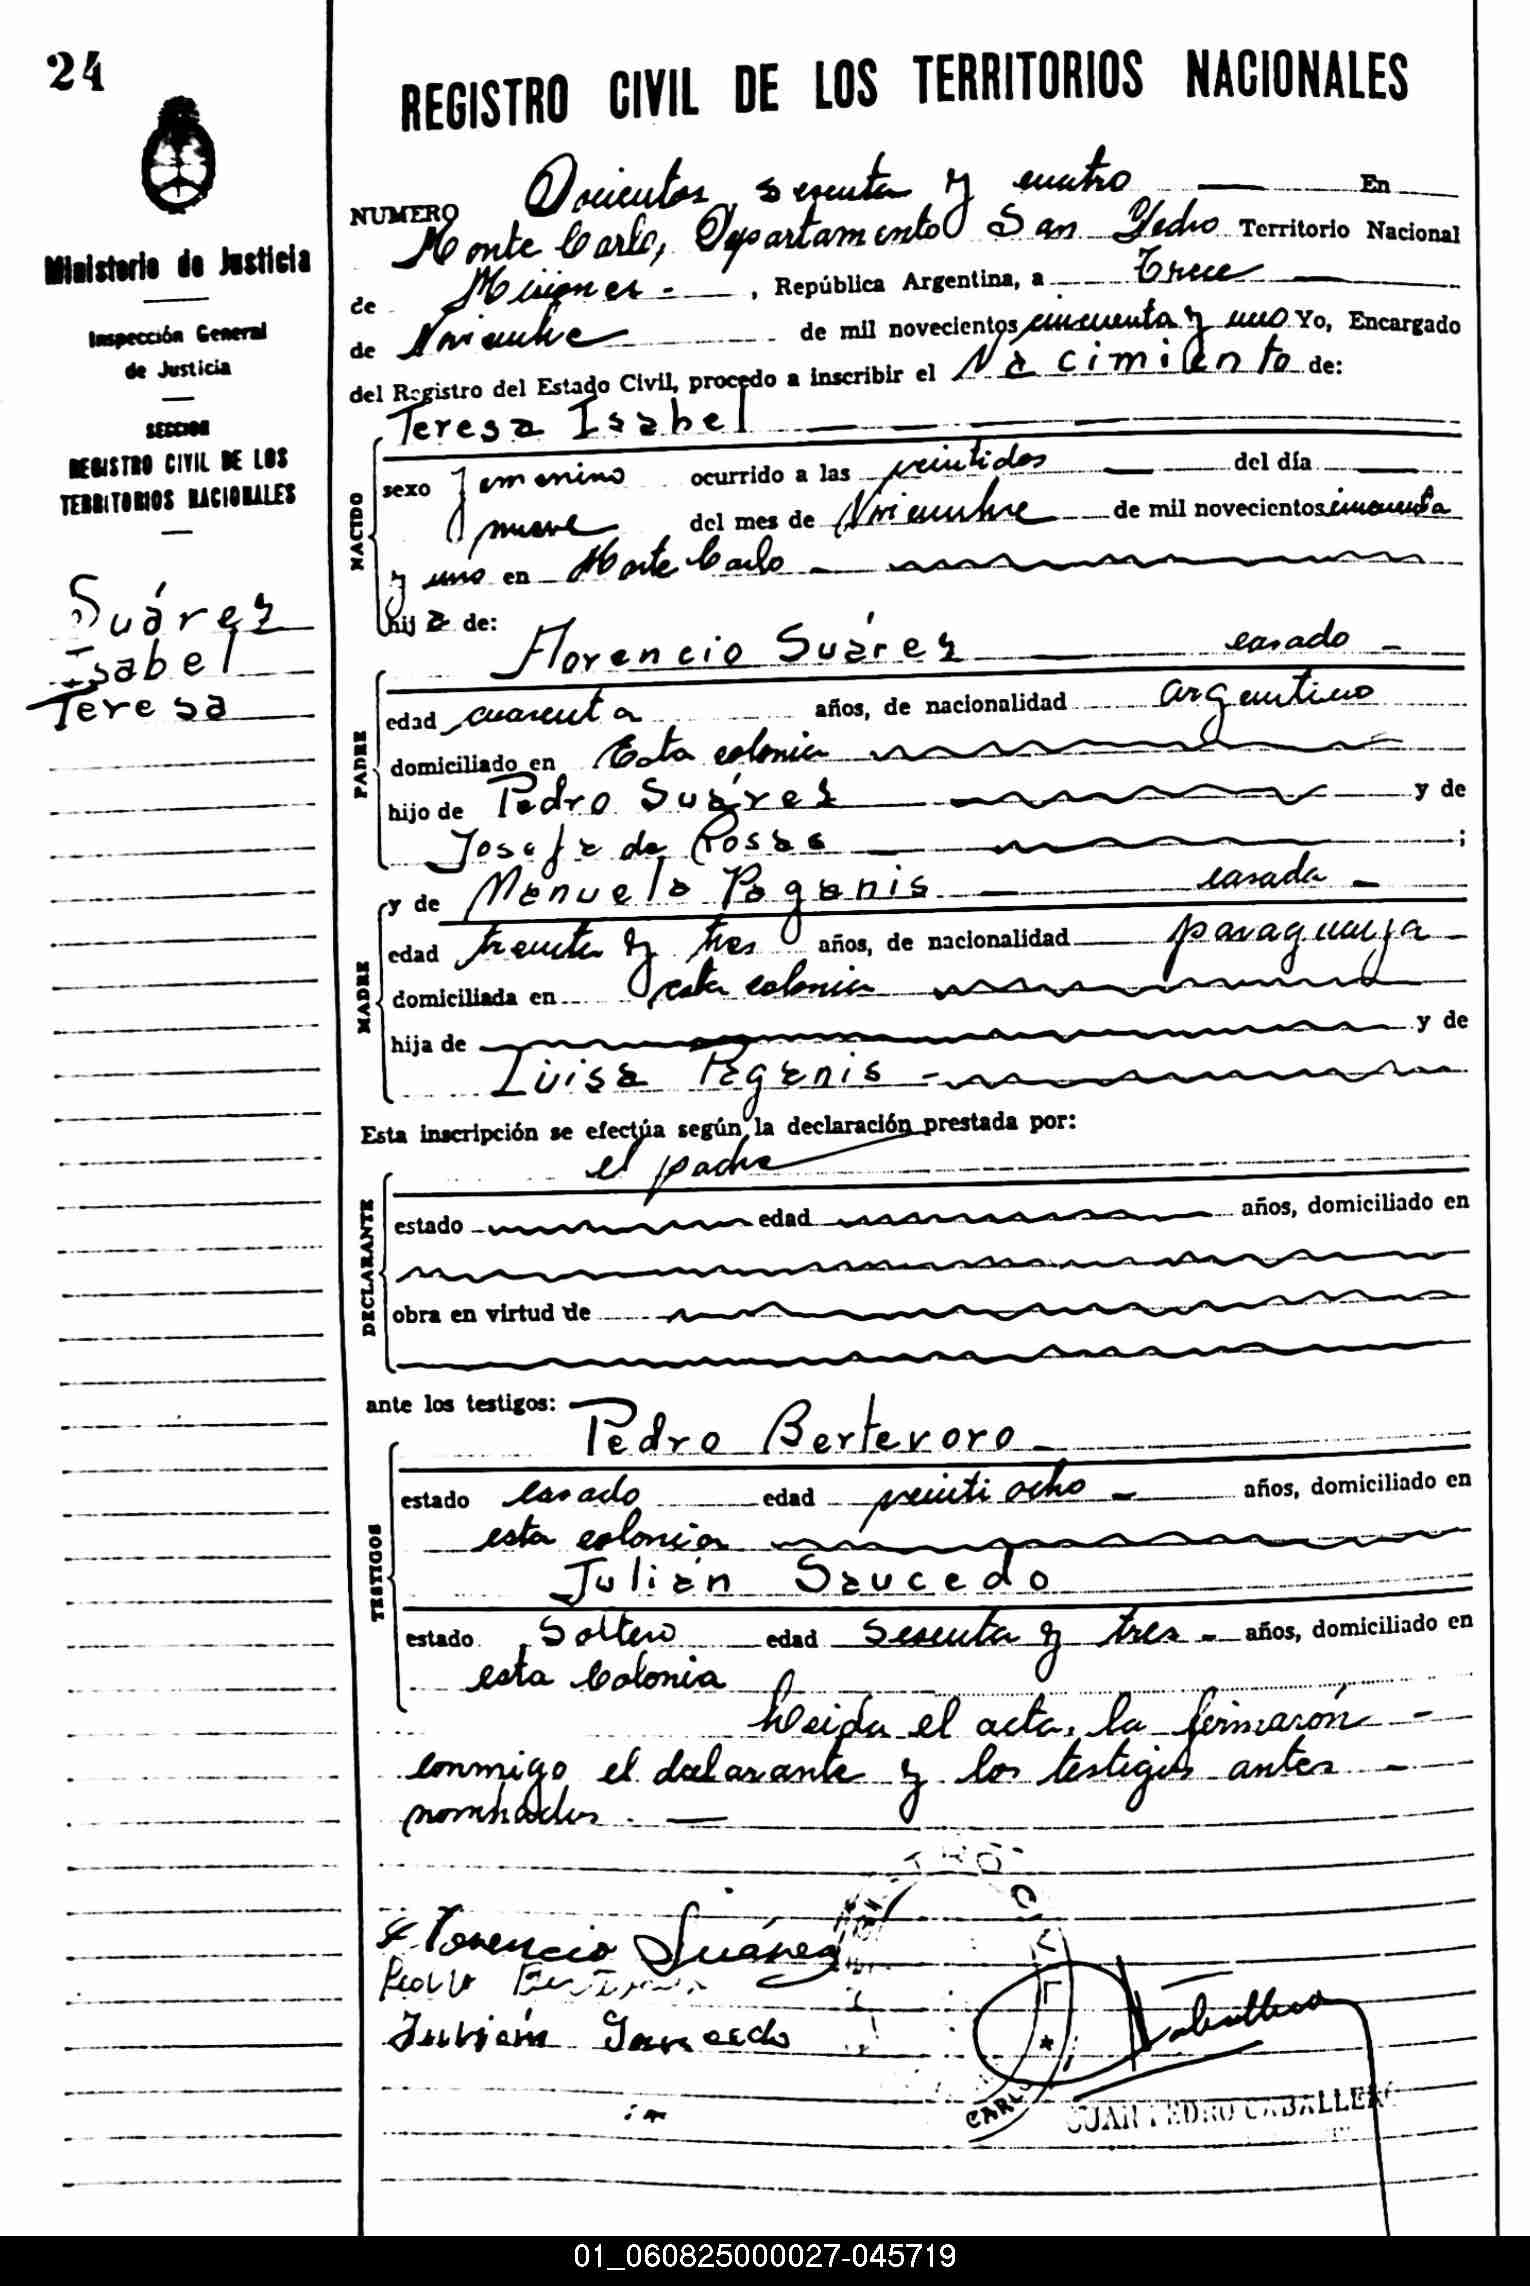 24
REGISTRO CIVIL DE LOS TERRITORIOS NACIONALES
Ministerio de Justicia
Inspección General
de Justicia
SECCION
REGISTRO CIVIL DE LOS
TERRITORIOS NACIONALES
Suárez
Isabel
Teresa
NUMERO Docientos sesenta y cuatro En
Monte Carlo, Departamento San Pedro Territorio Nacional
de Misiones - , República Argentina, a Trece
de Noviembre de mil novecientos cincuenta y uno Yo, Encargado
del Registro del Estado Civil, procedo a inscribir el Nacimiento de:
Teresa Isabel
NACIDO
sexo femenino ocurrido a las veintidos del día
nueve del mes de Noviembre de mil novecientos cincuenta
y uno en Monte Carlo
hija de:
Florencio Suárez casado -
PADRE
edad cuarenta años, de nacionalidad argentino
domiciliado en Esta colonia
hijo de Pedro Suárez y de
Josefa de Rosas ;
y de Manuela Paganis casada -
MADRE
edad treinta y tres años, de nacionalidad paraguaya
domiciliada en esta colonia
hija de y de
Luisa Paganis -
Esta inscripción se efectúa según la declaración prestada por:
el padre
DECLARANTE
estado edad años, domiciliado en
obra en virtud de
ante los testigos:
Pedro Bertevoro -
TESTIGOS
estado casado edad veinti ocho - años, domiciliado en
esta colonia
Julián Saucedo
estado Soltero edad Sesenta y tres - años, domiciliado en
esta Colonia
Leida el acta, la firmarón -
conmigo el declarante y los testigos antes -
nombrados. -
Florencio Suárez
Pedro
Julián Saucedo
Caballero
CARLO
JUAN PEDRO CABALLERO
01_060825000027-045719